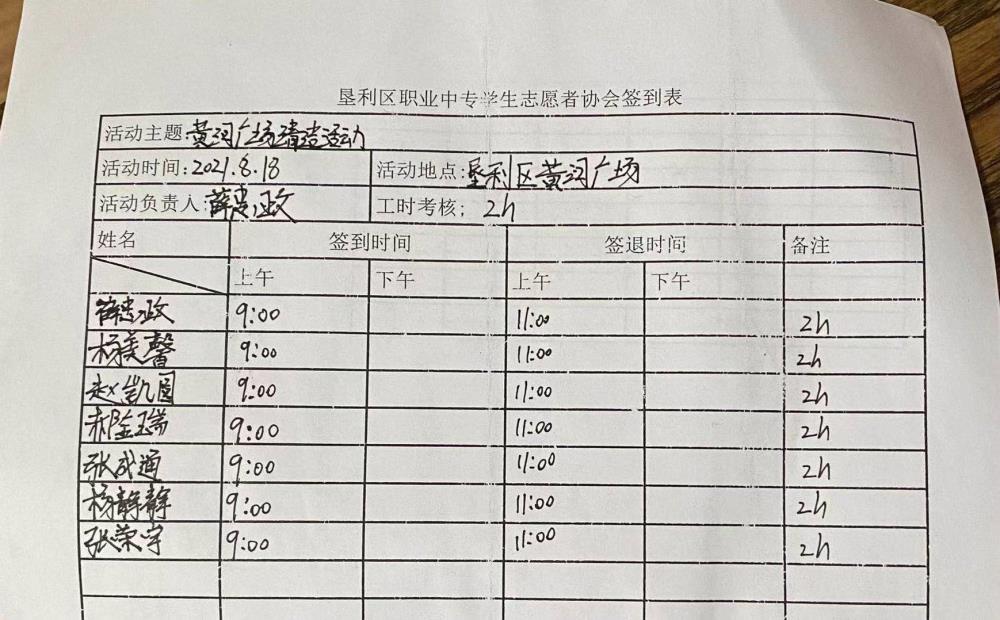 垦利区职业中专学生志愿者协会签到表
活动主题 黄河广场清洁活动
活动时间:2021.8.18 活动地点:垦利区黄河广场
活动负责人: 薛志政 工时考核; 2h
姓名 签到时间 签退时间 备注
上午 下午 上午 下午
薛志政 9:00 11:00 2h
杨美馨 9:00 11:00 2h
赵凯圆 9:00 11:00 2h
郝金瑞 9:00 11:00 2h
张成通 9:00 11:00 2h
杨静静 9:00 11:00 2h
张荣宇 9:00 11:00 2h